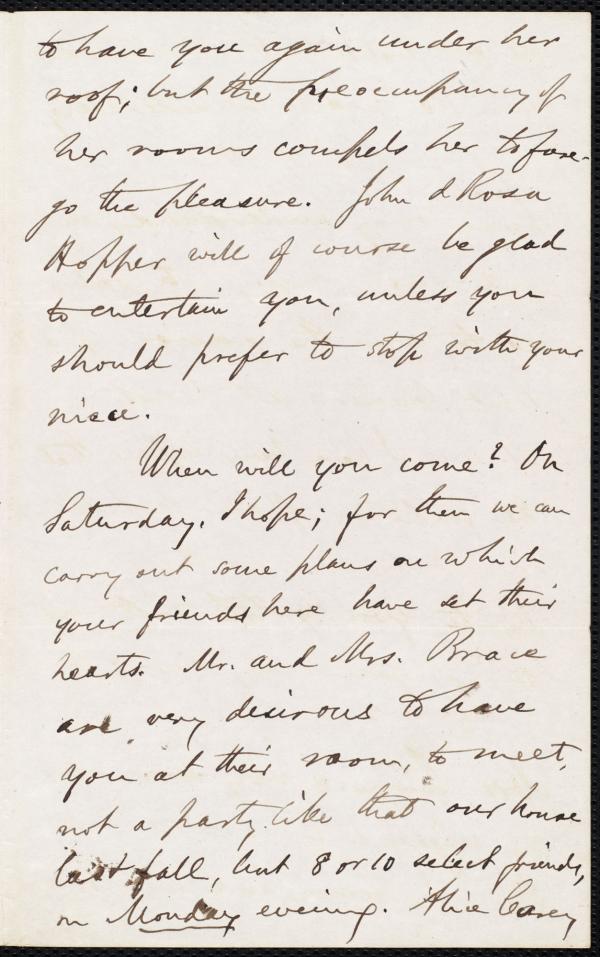 to have you again under her
roof; but the preoccupancy of
her rooms compels her to fore-
go the pleasure. John & Rosa
Hopper will of course be glad
to entertain you, unless you
should prefer to stop with your
niece.
When will you come? On
Saturday, I hope; for then we can
carry out some plans on which
your friends here have set their
hearts. Mr. and Mrs. Brace
are very desirous to have
you at their room, to meet,
not a party like that our house
last fall, but 8 or 10 select friends,
on Monday evening. Alice Carey